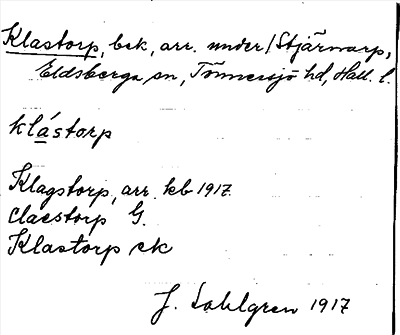 Klastorp, bek, arr. under Stjärnarp,
Eldsberga sn, Tönnersjö hd, Hall. l.
klástorp
Klagstorp, arr. kb 1917.
Claestorp G.
Klastorp ek
J. Sahlgren 1917